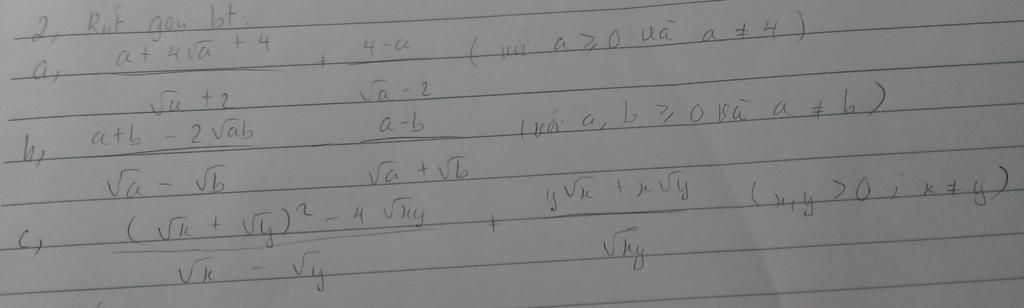 2, Rút gọn bt.
a, \frac{a + 4\sqrt{a} + 4}{\sqrt{a} + 2} + \frac{4 - a}{\sqrt{a} - 2} ( với a ≥ 0 và a ≠ 4 )
b, \frac{a + b - 2\sqrt{ab}}{\sqrt{a} - \sqrt{b}} \frac{a - b}{\sqrt{a} + \sqrt{b}} ( với a, b ≥ 0 và a ≠ b )
c, \frac{(\sqrt{x} + \sqrt{y})^2 - 4\sqrt{xy}}{\sqrt{x} - \sqrt{y}} + \frac{y\sqrt{x} + x\sqrt{y}}{\sqrt{xy}} ( x, y > 0 ; x ≠ y )